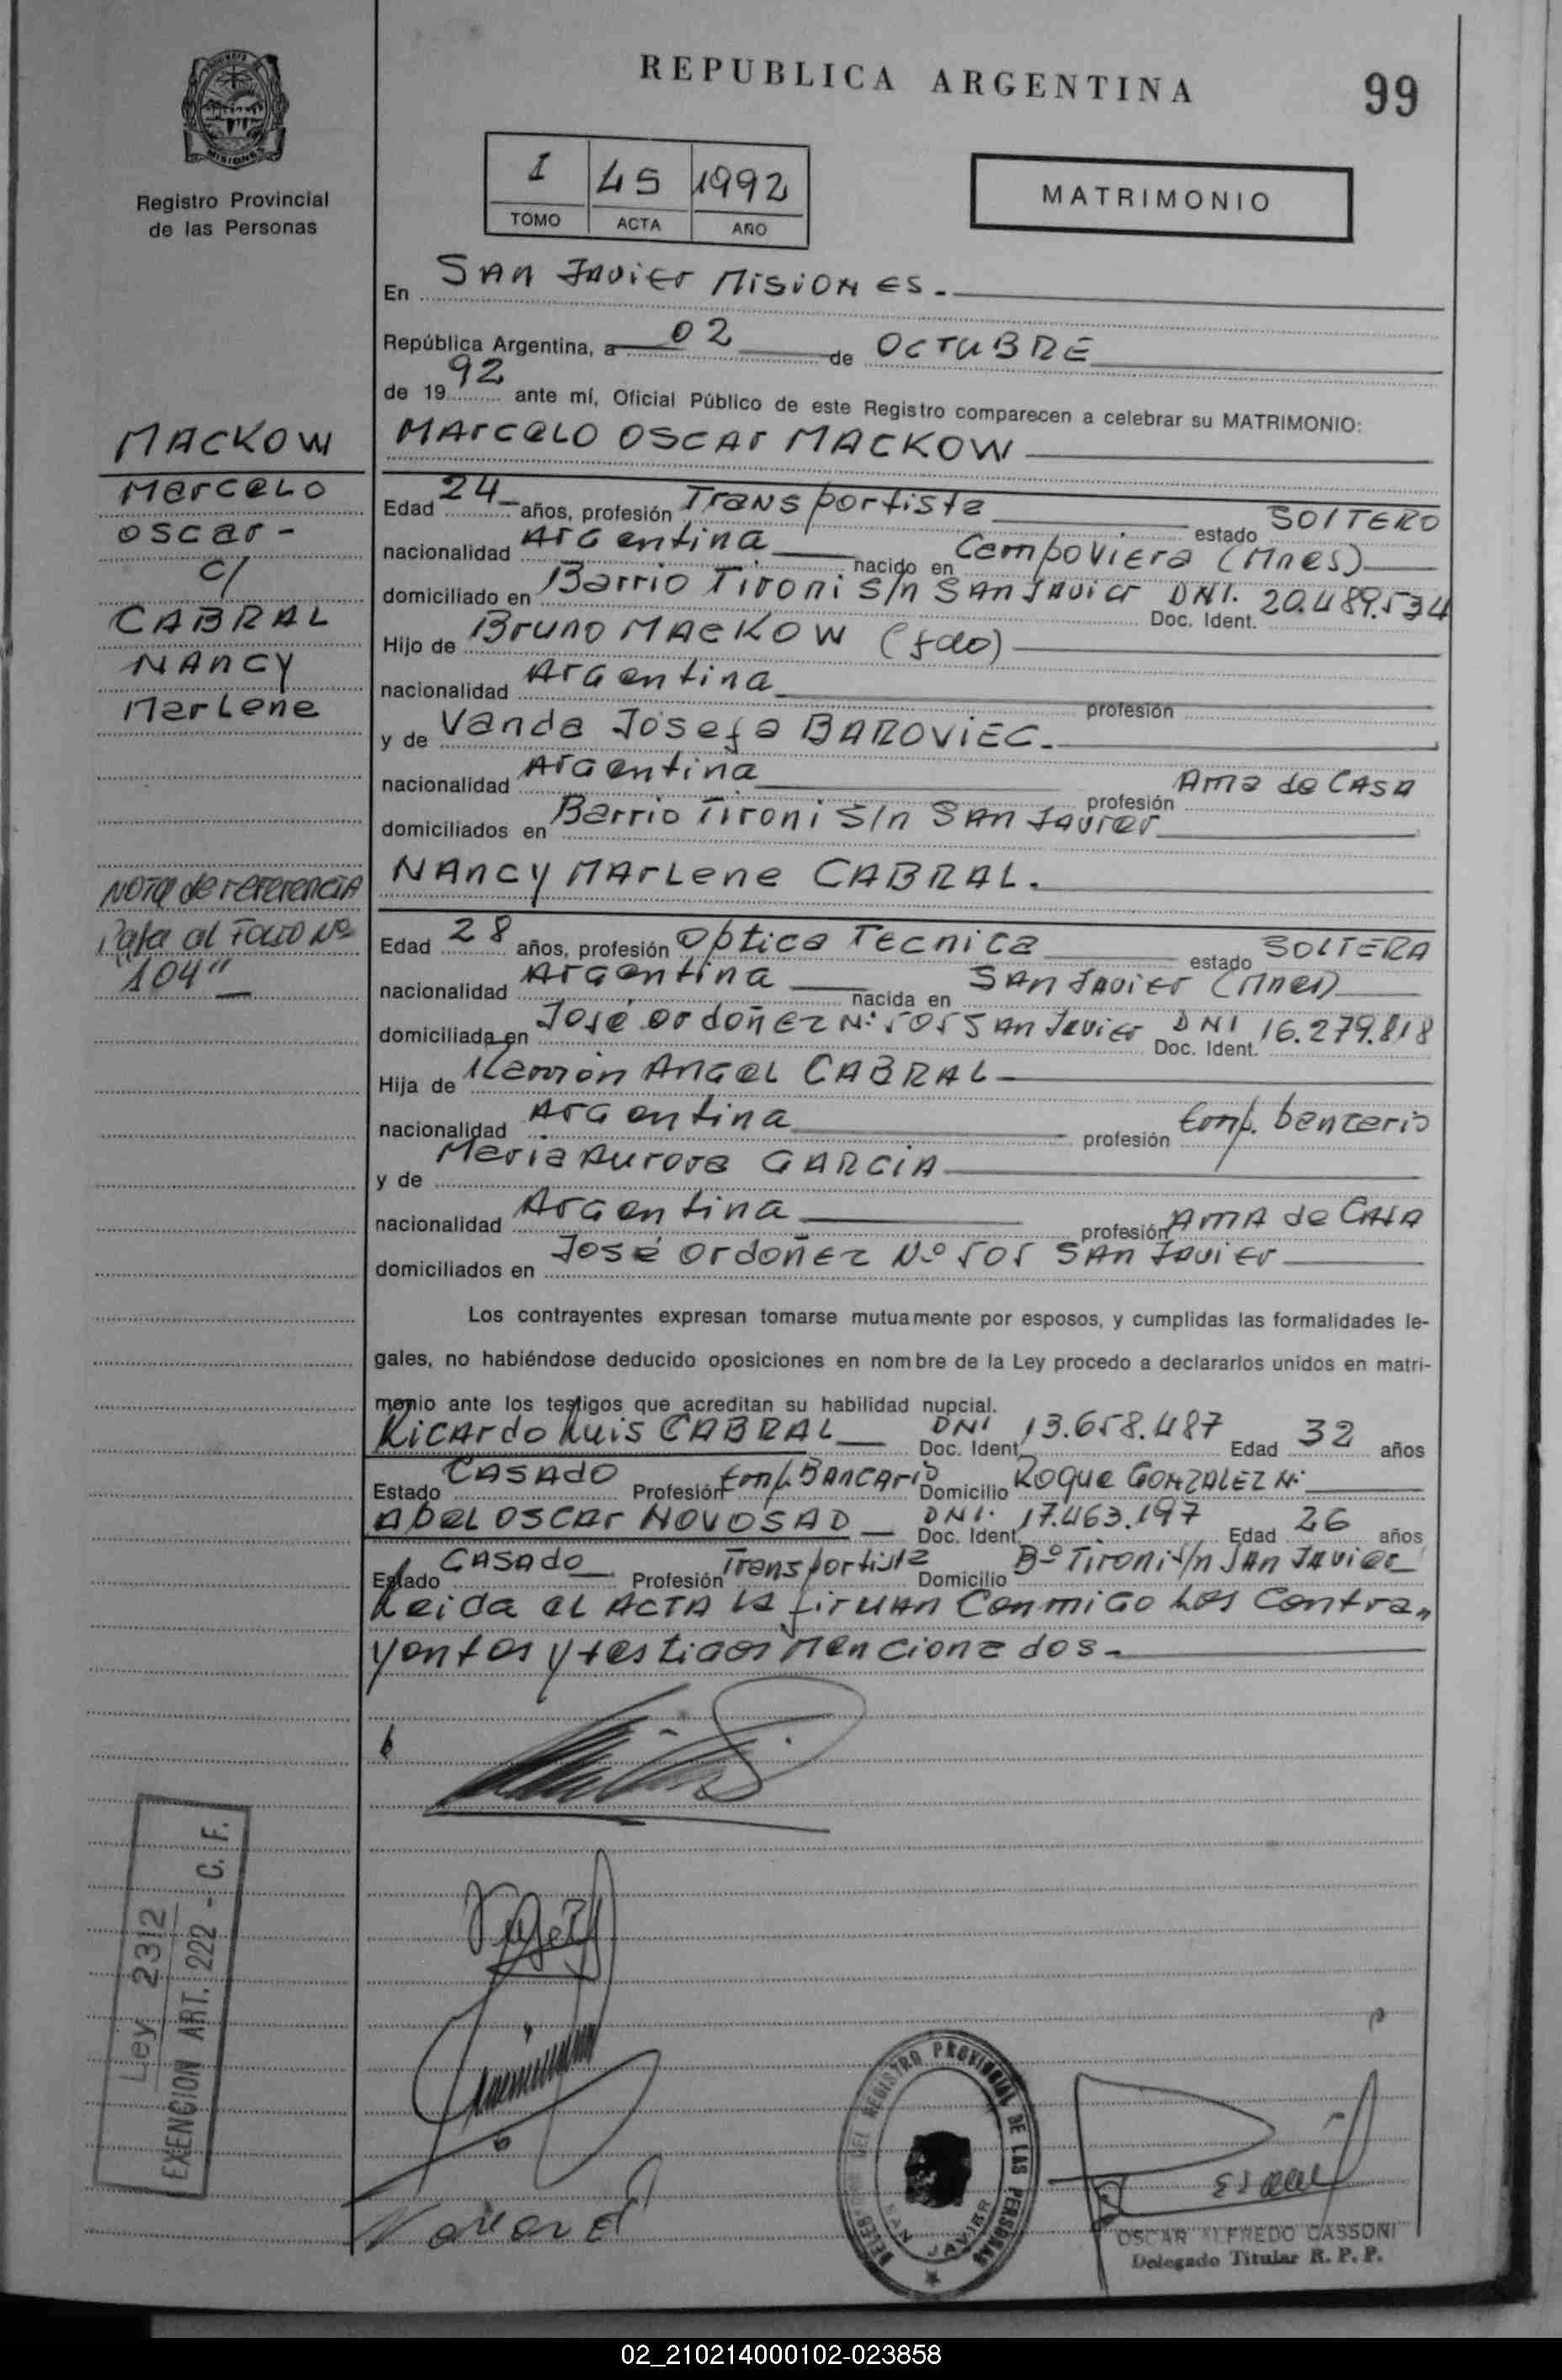 REPUBLICA ARGENTINA
99
MISIONES
Registro Provincial
de las Personas
I 45 1992
TOMO ACTA AÑO
MATRIMONIO
En SAN JAVIER MISIONES.
República Argentina, a 02 de OCTUBRE
de 1992 ante mí, Oficial Público de este Registro comparecen a celebrar su MATRIMONIO:
MACKOW
Marcelo
Oscar -
c/
CABRAL
NANCY
Marlene
MARCELO OSCAR MACKOW
Edad 24 años, profesión Transportista estado SOLTERO
nacionalidad Argentina nacido en Campoviera (Mnes)
domiciliado en Barrio Tironi s/n SAN JAVIER Doc. Ident. DNI. 20.489.534
Hijo de Bruno MACKOW (fdo)
nacionalidad Argentina profesión
y de Vanda Josefa BAROVIEC.
nacionalidad Argentina profesión Ama de CASA
domiciliados en Barrio Tironi s/n SAN JAVIER
NANCY MARLENE CABRAL.
NOTA de referencia
Pasa al FOLIO Nº
"104"
Edad 28 años, profesión Optica Tecnica estado SOLTERA
nacionalidad Argentina nacida en SAN JAVIER (Mnes)
domiciliada en José Ordoñez Nº 505 SAN JAVIER Doc. Ident. DNI 16.279.818
Hija de Ramón ANGEL CABRAL
nacionalidad Argentina profesión Emp. bancario
y de Maria Aurora GARCIA
nacionalidad Argentina profesión AMA de CASA
domiciliados en José Ordoñez Nº 505 SAN JAVIER
Los contrayentes expresan tomarse mutuamente por esposos, y cumplidas las formalidades le-
gales, no habiéndose deducido oposiciones en nombre de la Ley procedo a declararlos unidos en matri-
monio ante los testigos que acreditan su habilidad nupcial.
RICARDO LUIS CABRAL Doc. Ident. DNI 13.658.487 Edad 32 años
Estado CASADO Profesión Emp. BANCARIO Domicilio Roque GONZALEZ Nº
ABEL OSCAR NOVOSAD Doc. Ident. DNI. 17.463.197 Edad 26 años
Estado CASADO Profesión Transportista Domicilio Bº Tironi s/n SAN JAVIER
Leida el ACTA la firman Conmigo los Contra„
yentes y testigos Mencionados.
Ley 2312
EXENCION ART. 222 - C. F.
DELEGACION DEL REGISTRO PROVINCIAL DE LAS PERSONAS
SAN JAVIER
OSCAR ALFREDO CASSONI
Delegado Titular R. P. P.
02_210214000102-023858